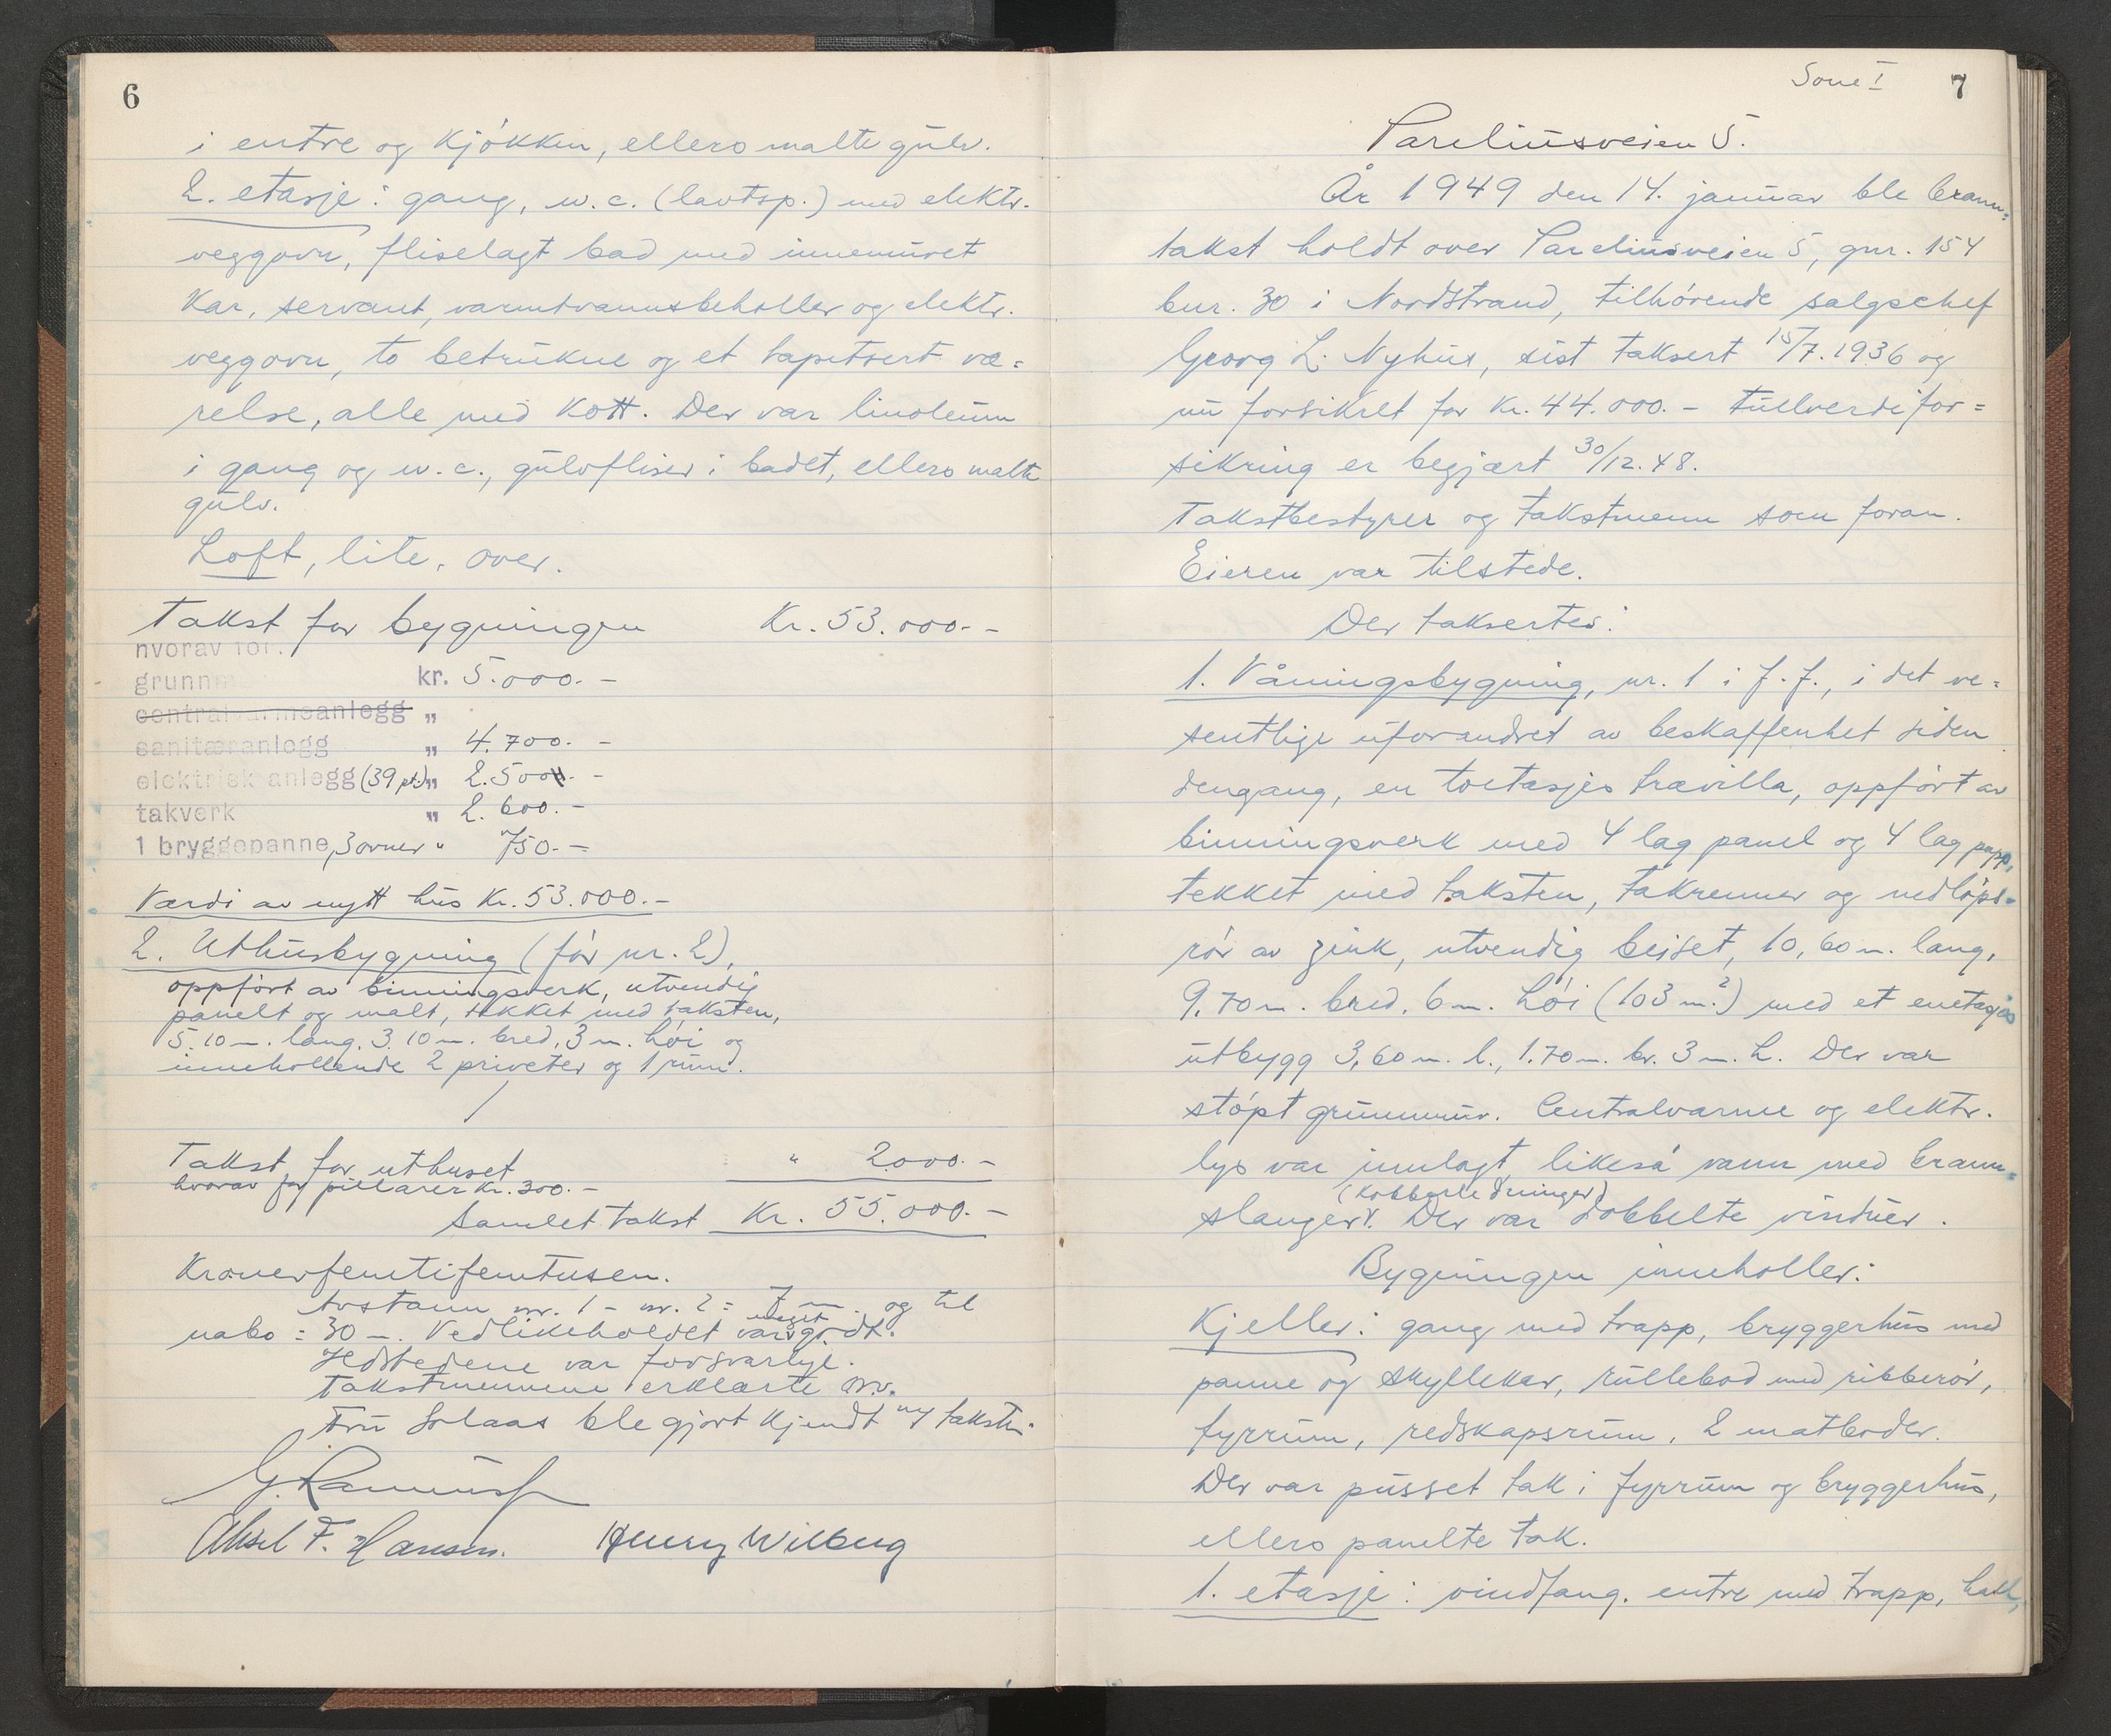 6
i entre og kjøkken, ellers malte gulv.
2. etasje: gang, w.c. (lavtsp.) med elektr.
veggovn, fliselagt bad med innemuret
kar, servant, varmtvannsbeholler og elektr.
veggovn, to betrukne og et tapetsert væ=
relse, alle med kott. Der var linoleum
i gang og w.c., gulvfliser i badet, ellers malte
gulv.
Loft, lite, over.
Takst for bygningen Kr. 53.000.-
hvorav for:
grunnm kr. 5.000.-
centralvarmeanlegg "
sanitæranlegg " 4.700.-
elektrisk anlegg (39 pkt.) " 2.500.-
takverk " 2.600.-
1 bryggepanne, 3 ovner " 750.-
Værdi av nytt hus Kr. 53.000.-
2. Uthusbygning (før nr. 2),
oppført av binningsverk, utvendig
panelt og malt, tekket med taksten,
5.10 m. lang, 3.10 m. bred, 3 m. høi og
inneholdende 2 priveter og 1 rum.
Takst for uthuset " 2000.-
hvorav for pillarer Kr. 300.-
Samlet takst Kr. 55.000.-
Kronerfemtifemtusen.
Avstann nr. 1 - nr. 2 = 7 m. og til
nabo = 30 m. Vedlikeholdet var meget godt.
Ildstedene var forsvarlige.
Takstmennene erklærte m.v.
Fru Solaas ble gjort kjendt m/ taksten.
Aksel F. Hansen. Henry Wilberg
Sone I 7
Pareliusveien 5.
År 1949 den 14. januar ble brann=
takst holdt over Pareliusveien 5, gnr. 154
bnr. 30 i Nordstrand, tilhørende salgschef
Georg L. Nyhus, sist taksert 15/7.1936 og
nu forsikret for Kr. 44.000.- Fullverdifor=
sikring er begjært 30/12.48.
Takstbestyrer og takstmenn som foran.
Eieren var tilstede.
Der taksertes:
1. Våningsbygning, nr. 1 i f.f., i det ve=
sentlige uforandret av beskaffenhet siden
dengang, en toetasjes trævilla, oppført av
binningsverk med 4 lag panel og 4 lag papp,
tekket med taksten, takrenner og nedløps=
rør av zink, utvendig beiset, 10,60 m. lang,
9.70 m. bred, 6 m. høi (103 m.²) med et enetasjes
utbygg 3,60 m. l., 1.70 m. br. 3 m. h. Der var
støpt grunnmur. Centralvarme og elektr.
lys var innlagt likeså vann med brann=
slanger. (kobberledninger) Der var dobbelte vinduer.
Bygningen inneholler:
Kjeller: gang med trapp, bryggerhus med
panne og skyllekar, rullebod med ribberør,
fyrrum, redskapsrum, 2 matboder.
Der var pusset tak i fyrrum og bryggerhus,
ellers panelte tak.
1. etasje: vindfang, entre med trapp, hall,